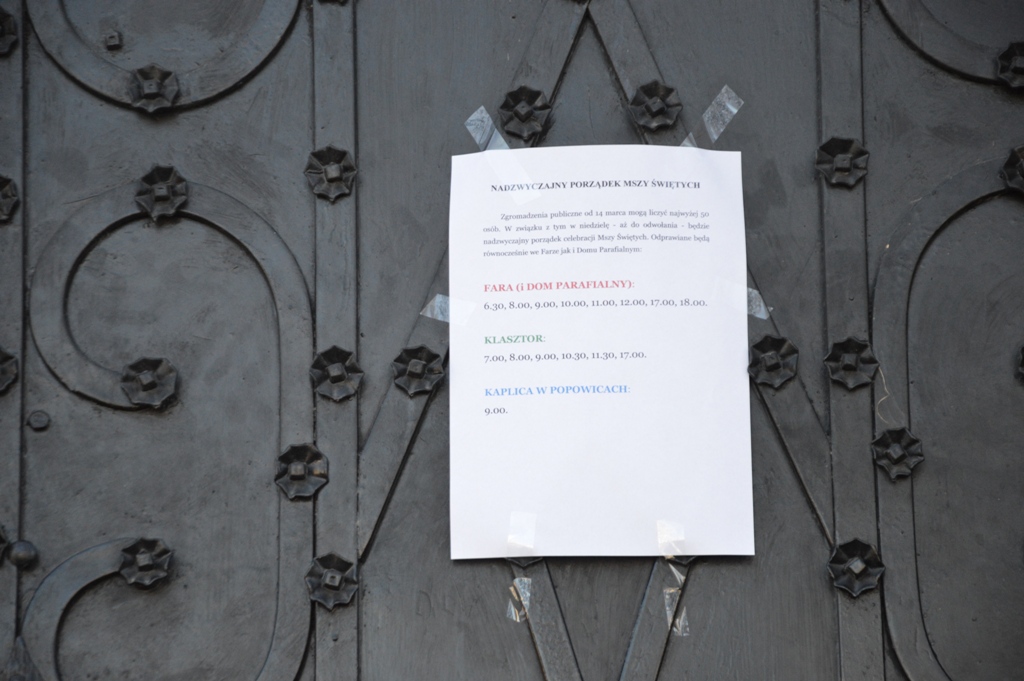 NADZWYCZAJNY PORZĄDEK MSZY ŚWIĘTYCH
Zgromadzenia publiczne od 14 marca mogą liczyć najwyżej 50
osób. W związku z tym w niedzielę - aż do odwołania - będzie
nadzwyczajny porządek celebracji Mszy Świętych. Odprawiane będą
równocześnie we Farze jak i Domu Parafialnym:
FARA (i DOM PARAFIALNY):
6.30, 8.00, 9.00, 10.00, 11.00, 12.00, 17.00, 18.00.
KLASZTOR:
7.00, 8.00, 9.00, 10.30, 11.30, 17.00.
KAPLICA W POPOWICACH:
9.00.